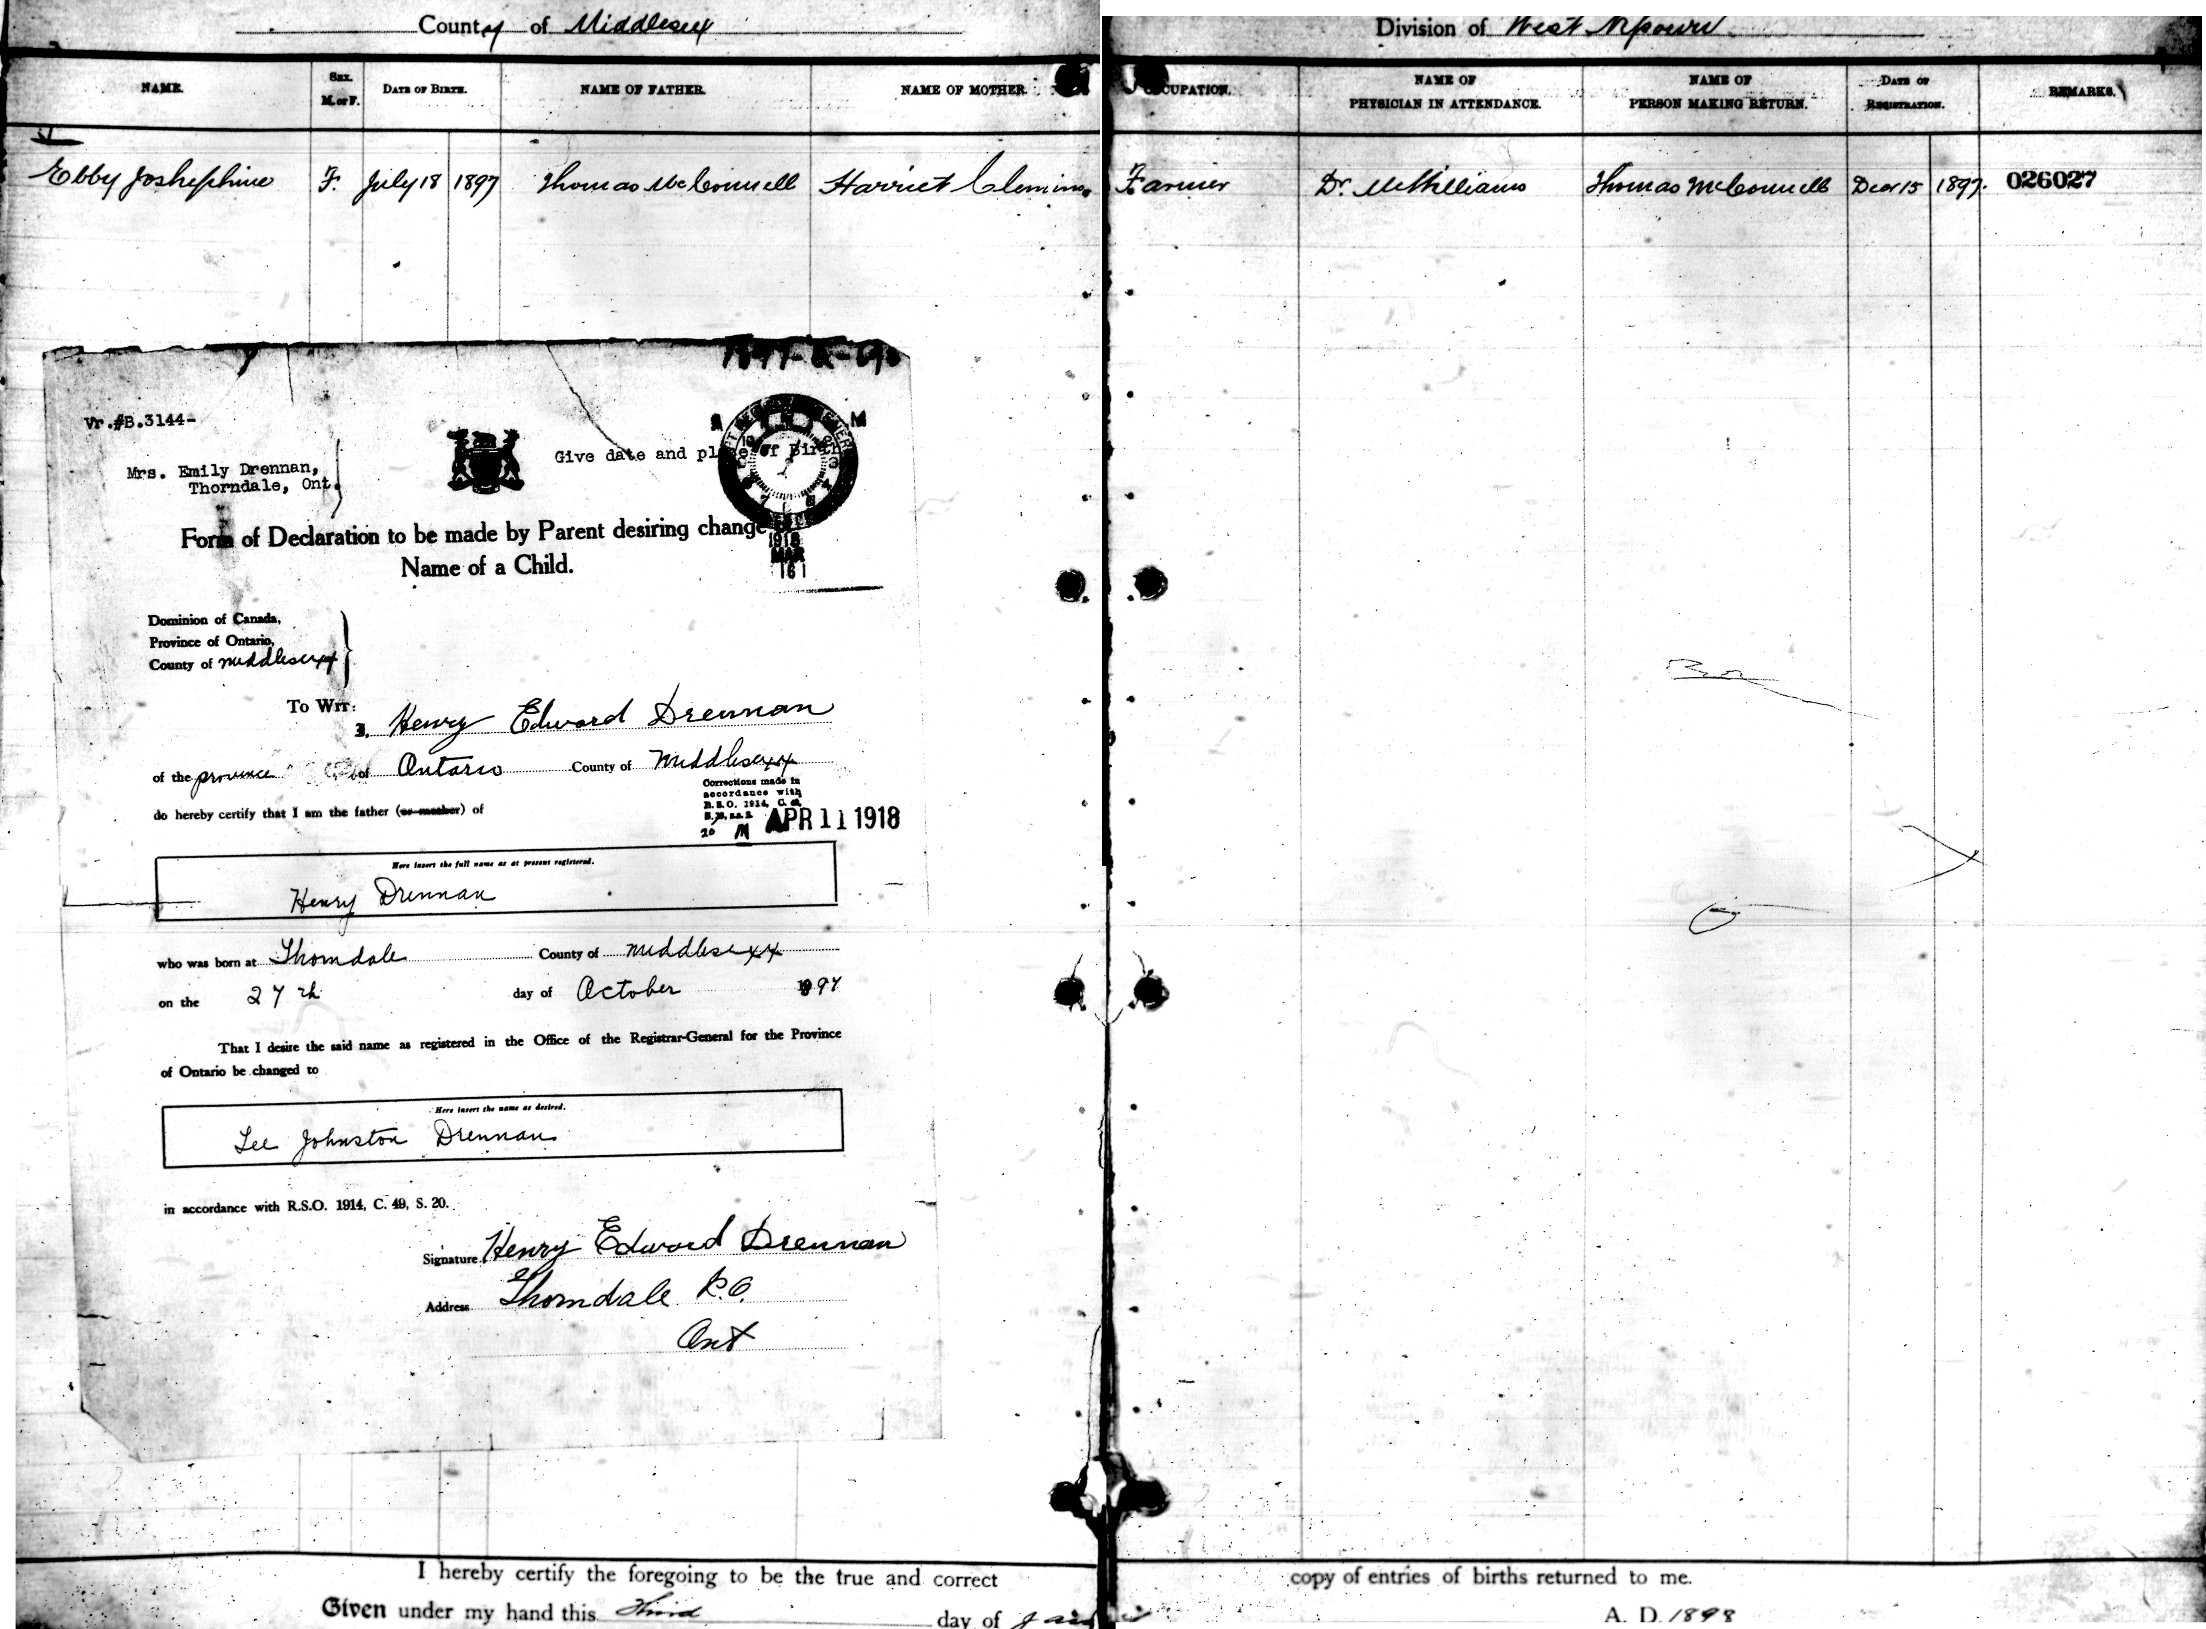 County of Middlesex Division of West Nissouri
NAME. SEX. M. or F. DATE OF BIRTH. NAME OF FATHER. NAME OF MOTHER. OCCUPATION. NAME OF PHYSICIAN IN ATTENDANCE. NAME OF PERSON MAKING RETURN. DATE OF REGISTRATION. REMARKS.
Ebby Joshephine F. July 18 1897 Thomas McConnell Harriet Farmer Dr. McWilliams Thomas McConnell Dec 15 1897. 026027
Vr.#B.3144-
Mrs. Emily Drennan,
Thorndale, Ont.
Give date and place of Birth
Form of Declaration to be made by Parent desiring change
Name of a Child.
1918
MAR
16
Dominion of Canada,
Province of Ontario,
County of Middlesexx
TO WIT:
I, Henry Edward Drennan
of the province of Ontario County of Middlesexx
do hereby certify that I am the father (or mother) of
Corrections made in
accordance with
R.S.O. 1914, C. 49,
APR 11 1918
Here insert the full name as at present registered.
Henry Drennan
who was born at Thorndale County of Middlesexx
on the 27th day of October 1897
That I desire the said name as registered in the Office of the Registrar-General for the Province
of Ontario be changed to
Here insert the name as desired.
Lee Johnston Drennan
in accordance with R.S.O. 1914, C. 49, S. 20.
Signature Henry Edward Drennan
Address Thorndale P.O.
Ont
I hereby certify the foregoing to be the true and correct copy of entries of births returned to me.
Given under my hand this Third day of A. D. 1898